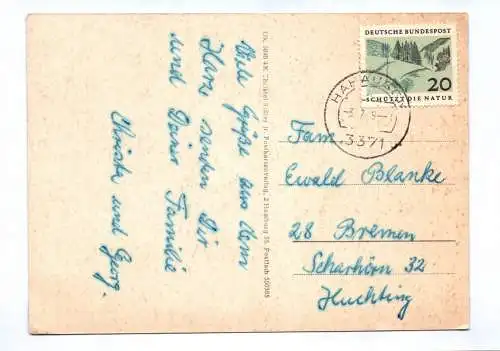 Viele Grüße aus dem
Harz senden Dir
und Deiner Familie
Christa und Georg.
DEUTSCHE BUNDESPOST
20
SCHÜTZT DIE NATUR
3371
Fam.
Ewald Blanke
28 Bremen
Scharhörn 32
Huchting